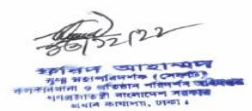 ০৬/১২/২২
ফরিদ আহাম্মদ
যুগ্ম মহাপরিদর্শক (সেফটি)
কলকারখানা ও প্রতিষ্ঠান পরিদর্শন অধিদপ্তর
গণপ্রজাতন্ত্রী বাংলাদেশ সরকার
প্রধান কার্যালয়, ঢাকা।